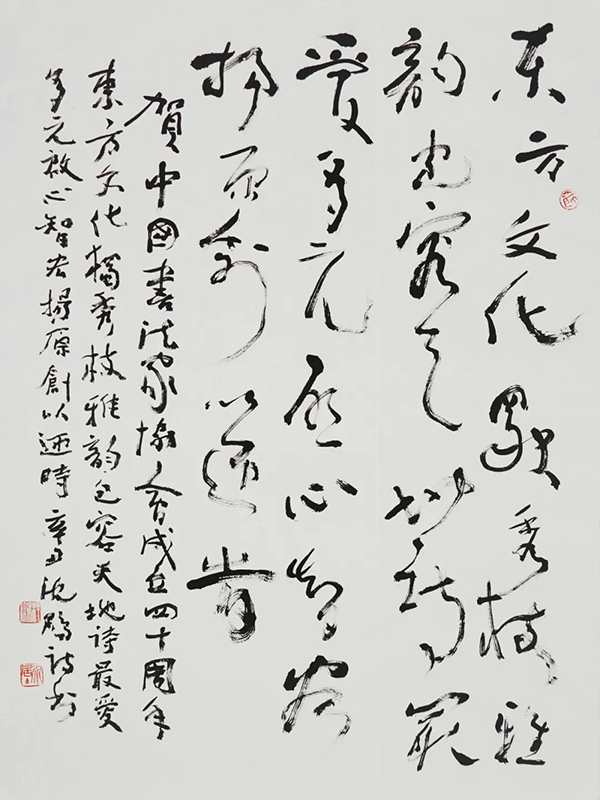 东方文化獨秀枝雅
韵包容天地詩最
愛多元啟心智宏
揚原創以迎時
賀中國書法家協會成立四十周年
東方文化獨秀枝雅韵包容天地詩最愛
多元啟心智宏揚原創以迎時辛丑沈鵬詩書